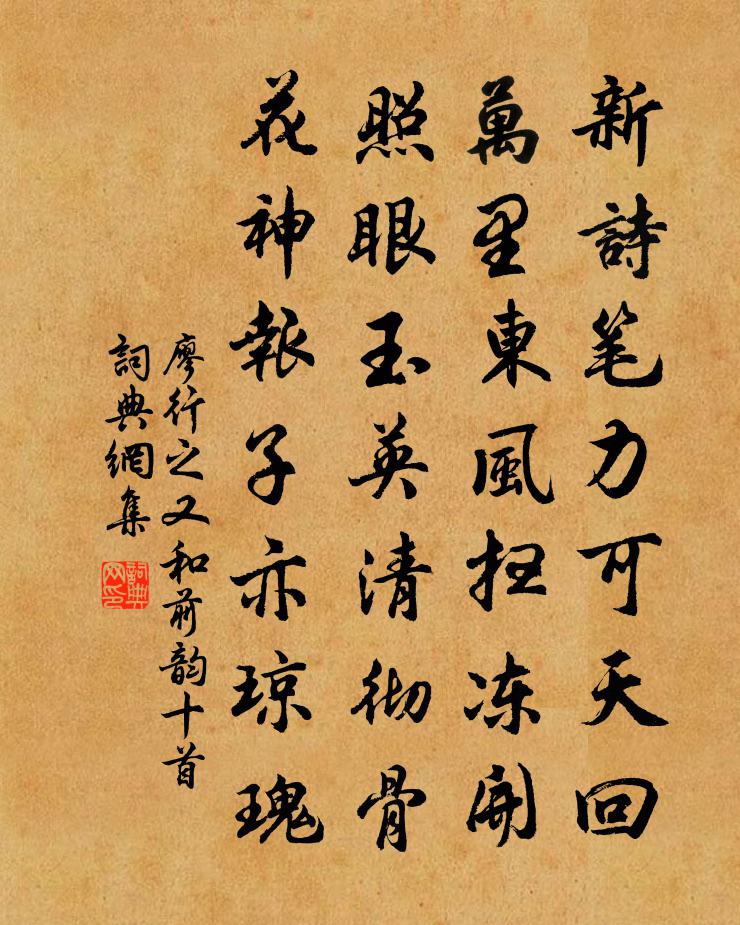 新詩笔力可天回
萬里東風扫冻開
照眼玉英清彻骨
花神報子亦琼瑰
廖行之又和前韵十首
詞典網集
詞典网印